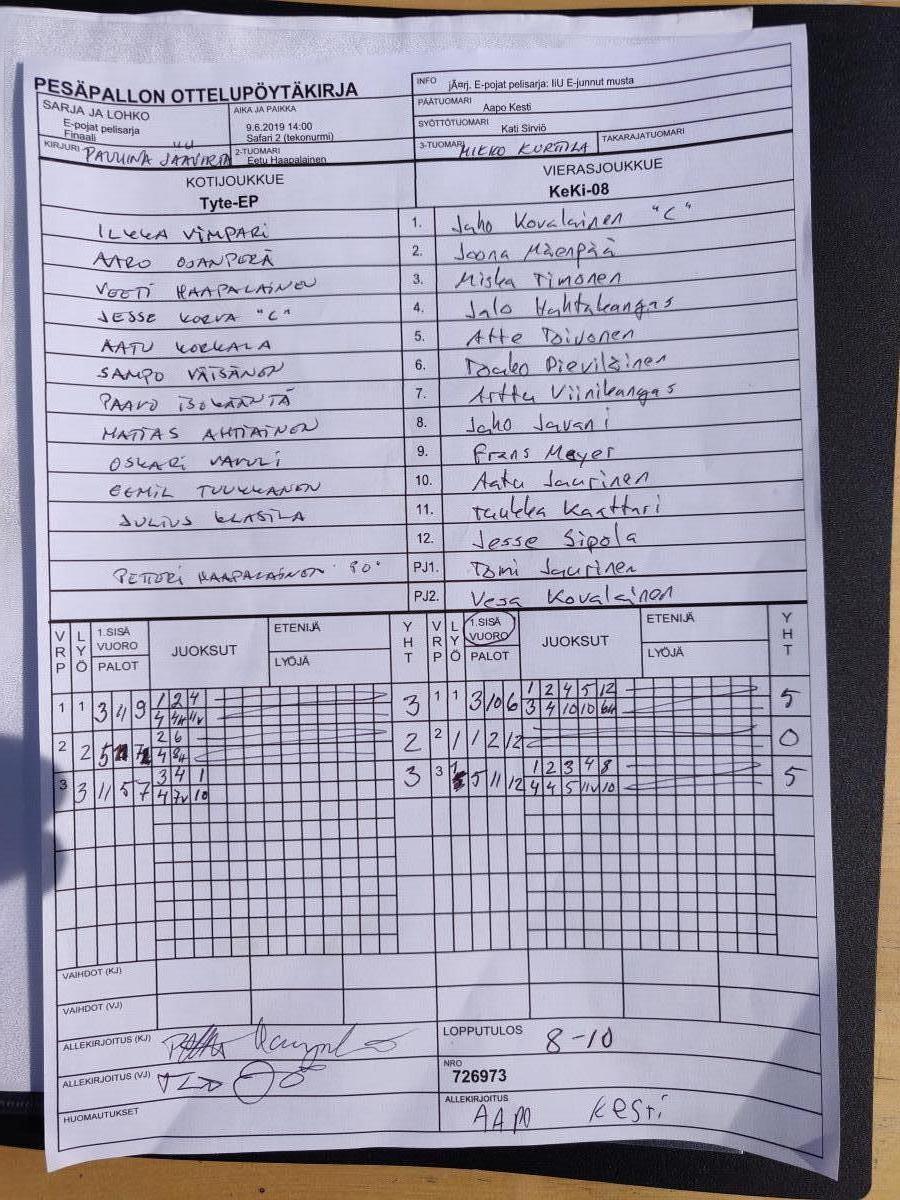 PESÄPALLON OTTELUPÖYTÄKIRJA
INFO jÃ¤rj. E-pojat pelisarja: IiU E-junnut musta
SARJA JA LOHKO
E-pojat pelisarja
Finaali
AIKA JA PAIKKA
9.6.2019 14:00
Safari 2 (tekonurmi)
PÄÄTUOMARI Aapo Kesti
SYÖTTÖTUOMARI Kati Sirviö
KIRJURI PAULIINA
2-TUOMARI Eetu Haapalainen
3-TUOMARI MIKKO KURTTILA
TAKARAJATUOMARI
KOTIJOUKKUE
Tyte-EP
VIERASJOUKKUE
KeKi-08
ILKKA VIMPARI 1. Juho Kovalainen "C"
AARO OJANPERÄ 2. Joona Mäenpää
VEETI HAAPALAINEN 3. Miska Timonen
JESSE KORVA "C" 4. Jalo Huhtakangas
AATU KORKALA 5. Atte Toivonen
SAMPO VÄISÄNEN 6. Pieviläinen
PAAVO ISOKÄÄNTÄ 7. Arttu Viinikangas
MATIAS AHTIAINEN 8. Juho Juvani
OSKARI VAVULI 9. Frans Meyer
EEMIL TUUKKANEN 10. Aatu Jaurinen
JULIUS KLASILA 11. Tuukka Kaattari
12. Jesse Sipola
PETTERI HAAPALAINEN PJ1. Tomi Jaurinen
PJ2. Vesa Kovalainen
VRP LYÖ 1.SISÄ VUORO PALOT JUOKSUT ETENIJÄ LYÖJÄ YHT VRP LYÖ 1.SISÄ VUORO PALOT JUOKSUT ETENIJÄ LYÖJÄ YHT
1 1 3 4 9 1 2 4 3 1 1 3 10 6 1 2 4 5 12 5
4 4H 11V 3 4 10 10 6H
2 2 5 7 2 6 2 2 1 1 2 12 0
4 8H
3 3 11 5 7 3 4 1 3 3 1 5 11 12 1 2 3 4 8 5
4 7V 10 4 4 5 11V 10
VAIHDOT (KJ)
VAIHDOT (VJ)
ALLEKIRJOITUS (KJ)
LOPPUTULOS 8-10
ALLEKIRJOITUS (VJ)
NRO
726973
HUOMAUTUKSET
ALLEKIRJOITUS AAPO KESTI